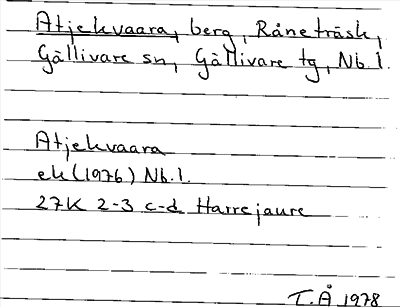 Atjekvaara, berg, Råneträsk,
Gällivare sn, Gällivare tg, Nb.l.
Atjekvaara
ek (1976) Nb.l.
27K 2-3 c-d Harrejaure
T.Å 1978